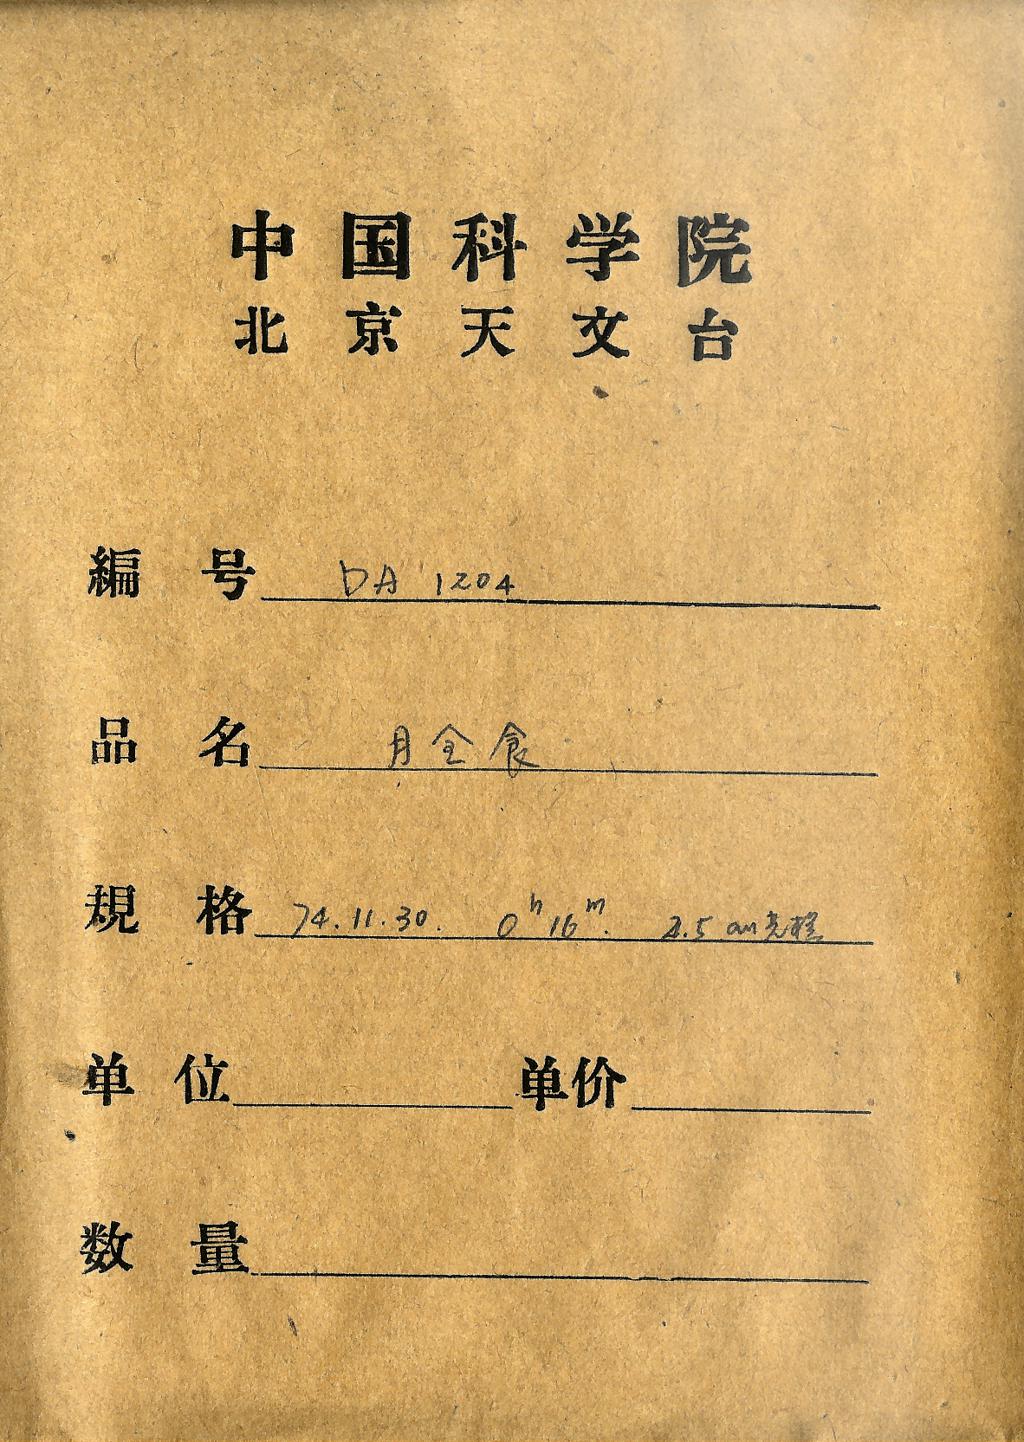 中国科学院
北京天文台
編号 DA 1204
品名 月全食
規格 74.11.30. 0h 16m. 2.5 cm
单位 单价
数量